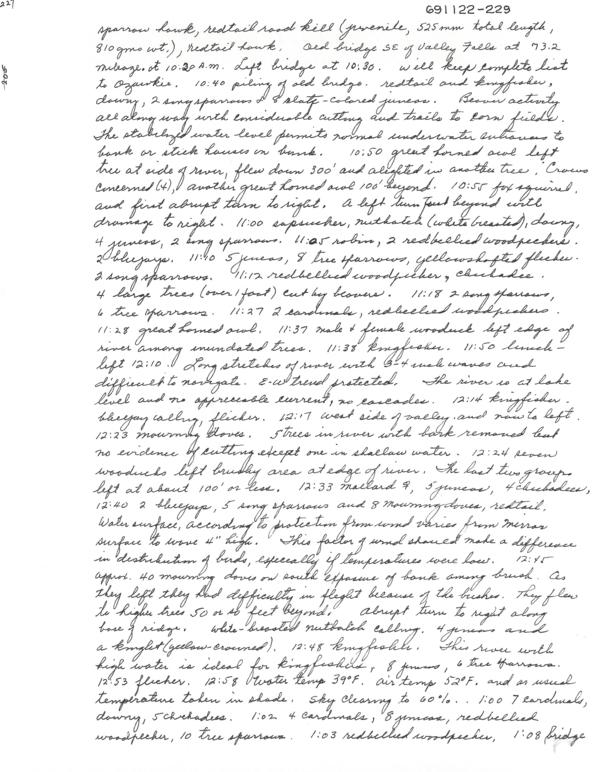 227
691122-229
208
sparrow hawk, redtail road kill (juvenile, 525 mm total length,
810 gms wt.), redtail hawk. Old bridge SE of Valley Falls at 73.2
mileage at 10:20 A.M. Left bridge at 10:30. Will keep complete list
to Ozawkie. 10:40 piling of old bridge. redtail and kingfisher,
downy, 2 song sparrows & 8 slate-colored juncos. Beaver activity
all along way with considerable cutting and trails to corn fields.
The stabilized water-level permits normal underwater entrances to
bank or stick houses on bank. 10:50 great horned owl left
tree at side of river, flew down 300' and alighted in another tree. Crows
concerned (4), another great horned owl 100' beyond. 10:55 fox squirrel,
and first abrupt turn to right. A left turn just beyond with
drainage to right. 11:00 sapsucker, nuthatch (white breasted), downy,
4 juncos, 2 song sparrows. 11:05 robin, 2 redbellied woodpeckers.
2 bluejays. 11:10 5 juncos, 8 tree sparrows, yellowshafted flicker.
2 song sparrows. 11:12 redbellied woodpecker, chickadee.
4 large trees (over 1 foot) cut by beavers. 11:18 2 song sparrows,
6 tree sparrows. 11:27 2 cardinals, redbellied woodpeckers.
11:28 great horned owl. 11:37 male & female woodduck left edge of
river among inundated trees. 11:38 kingfisher. 11:50 lunch-
left 12:10. Long stretches of river with 3-4 inch waves and
difficult to navigate. E-W trend protected. The river is at lake
level and no appreciable current, no cascades. 12:14 kingfisher.
bluejay calling, flicker. 12:17 west side of valley and now to left.
12:23 mourning doves. 5 trees in river with bark removed but
no evidence of cutting except one in shallow water. 12:24 seven
wooducks left brushy area at edge of river. The last two groups
left at about 100' or less. 12:33 mallard ♀, 5 juncos, 4 chickadees,
12:40 2 bluejays, 5 song sparrows and 8 mourning doves, redtail.
Water surface, according to protection from wind varies from mirror
surface to wave 4" high. This factor of wind should make a difference
in distribution of birds, especially if temperatures were low. 12:45
approx. 40 mourning doves on south exposure of bank among brush. As
they left they had difficulty in flight because of the bushes. They flew
to higher trees 50 or 60 feet beyond. Abrupt turn to right along
base of ridge. White-breasted nuthatch calling. 4 juncos and
a kinglet (yellow-crowned). 12:48 kingfisher. This river with
high water is ideal for kingfishers, 8 juncos, 6 tree sparrows.
12:53 flicker. 12:58 Water temp 39°F. air temp 52°F. and as usual
temperature taken in shade. Sky clearing to 60%. . 1:00 7 cardinals,
downy, 5 chickadees. 1:02 4 cardinals, 8 juncos, redbellied
woodpecker, 10 tree sparrows. 1:03 redbellied woodpecker, 1:08 bridge